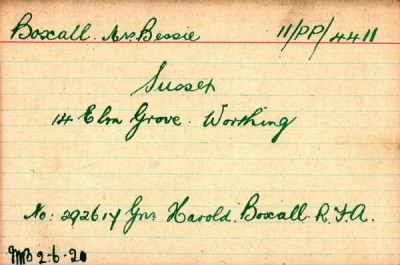 Boxall. Mrs Bessie 11/PP/4411
Sussex
14 Elm Grove. Worthing
No: 292617 Gnr Harold. Boxall. R.F.A.
2-6-20